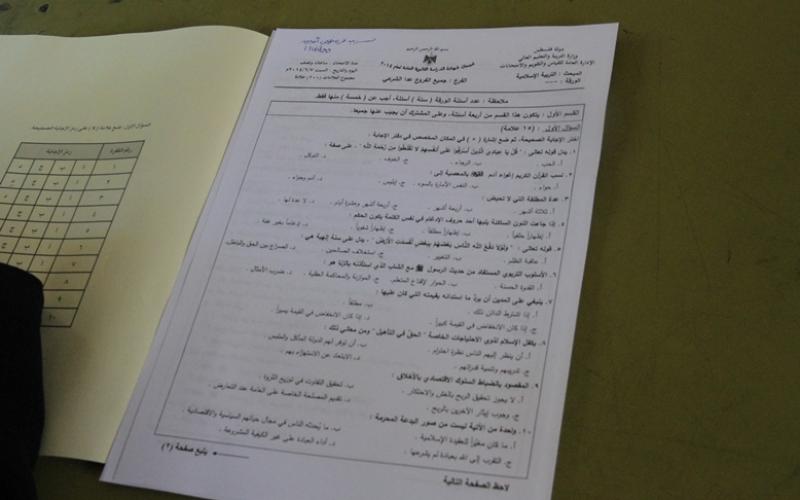 دولة فلسطين
وزارة التربية والتعليم العالي
الإدارة العامة للقياس والتقويم والامتحانات
المبحث : التربية الإسلامية
الورقة : ---
بسم الله الرحمن الرحيم
امتحان شهادة الدراسة الثانوية العامة لعام ٢٠١٤
الفرع : جميع الفروع عدا الشرعي
مدة الامتحان : ساعتان ونصف
اليوم والتاريخ : السبت ٢٠١٤/٦/٧م
مجموع العلامات (١٠٠) علامة
ملاحظة : عدد أسئلة الورقة ( ستة ) أسئلة، أجب عن ( خمسة ) منها فقط.
القسم الأول : يتكون هذا القسم من أربعة أسئلة، وعلى المشترك أن يجيب عنها جميعا.
السؤال الأول : (١٥ علامة)
اختر الإجابة الصحيحة، ثم ضع إشارة ( × ) في المكان المخصص في دفتر الإجابة :
١. يدل قوله تعالى : " قُلْ يَا عِبَادِيَ الَّذِينَ أَسْرَفُوا عَلَى أَنْفُسِهِمْ لَا تَقْنَطُوا مِنْ رَحْمَةِ اللَّهِ " ، على صفة :
أ. الحب . ب. الرجاء . ج. الخوف . د. التوكل .
٢. نسب القرآن الكريم إغواء آدم بالمعصية إلى :
أ. حواء . ب. النفس الأمارة بالسوء . ج. إبليس . د. آدم وحواء .
٣. عدة المطلقة التي لا تحيض :
أ. ثلاثة أشهر . ب. أربعة أشهر . ج. أربعة أشهر وعشرة أيام . د. لا عدة لها .
٤. إذا جاءت النون الساكنة يليها أحد حروف الإدغام في نفس الكلمة يكون الحكم :
أ. إظهاراً حلقياً . ب. إظهاراً مطلقاً . ج. إظهاراً شفوياً . د. إدغاماً بغير غنة .
٥. قوله تعالى : " وَلَوْلَا دَفْعُ اللَّهِ النَّاسَ بَعْضَهُمْ بِبَعْضٍ لَفَسَدَتِ الْأَرْضُ " ، يدل على سنة إلهية هي :
أ. عاقبة الظلم . ب. التغيير . ج. استخلاف الصالحين . د. الصراع بين الحق والباطل.
٦. الأسلوب التربوي المستفاد من حديث الرسول ﷺ مع الشاب الذي استأذنه بالزنا هو :
أ. القدوة الحسنة . ب. الحوار لإقناع المتعلم. ج. الموازنة والمحاكمة العقلية . د. ضرب الأمثال .
٧. ينبغي على المدين أن يردّ ما استدانه بقيمته التي كان عليها :
أ. إذا اشترط الدائن ذلك . ب. مطلقاً .
ج. إذا كان الانخفاض في القيمة كبيراً . د. إذا كان الانخفاض في القيمة يسيراً .
٨. يكفل الإسلام لذوي الاحتياجات الخاصة " الحق في التأهيل " ومن معاني ذلك :
أ. أن ينظر إليهم الناس نظرة احترام . ب. أن توفر لهم الدولة المأكل والملبس
ج. تدريبهم وتنمية قدراتهم . د. الابتعاد عن الاستهزاء بهم .
٩. المقصود بانضباط السلوك الاقتصادي بالأخلاق :
أ. لا يجوز تحقيق الربح بالغش والاحتكار . ب. تحقيق التفاوت في توزيع الثروة .
ج. وجوب إيثار الآخرين بالربح . د. تقديم المصلحة الخاصة على العامة عند التعارض .
١٠. واحدة من الآتية ليست من صور البدعة المحرمة :
أ. ما كان مغيّراً للعقيدة الإسلامية . ب. ما يُحدثه الناس في مجال حياتهم السياسية والاقتصادية .
ج. التقرب إلى الله بعبادة لم يشرعها . د. أداء العبادة على غير الكيفية المشروعة .
يتبع صفحة (٢)
لاحظ الصفحة التالية
السؤال الأول: ضع علامة (×) على رمز الإجابة الصحيحة
رقم الفقرة رمز الإجابة